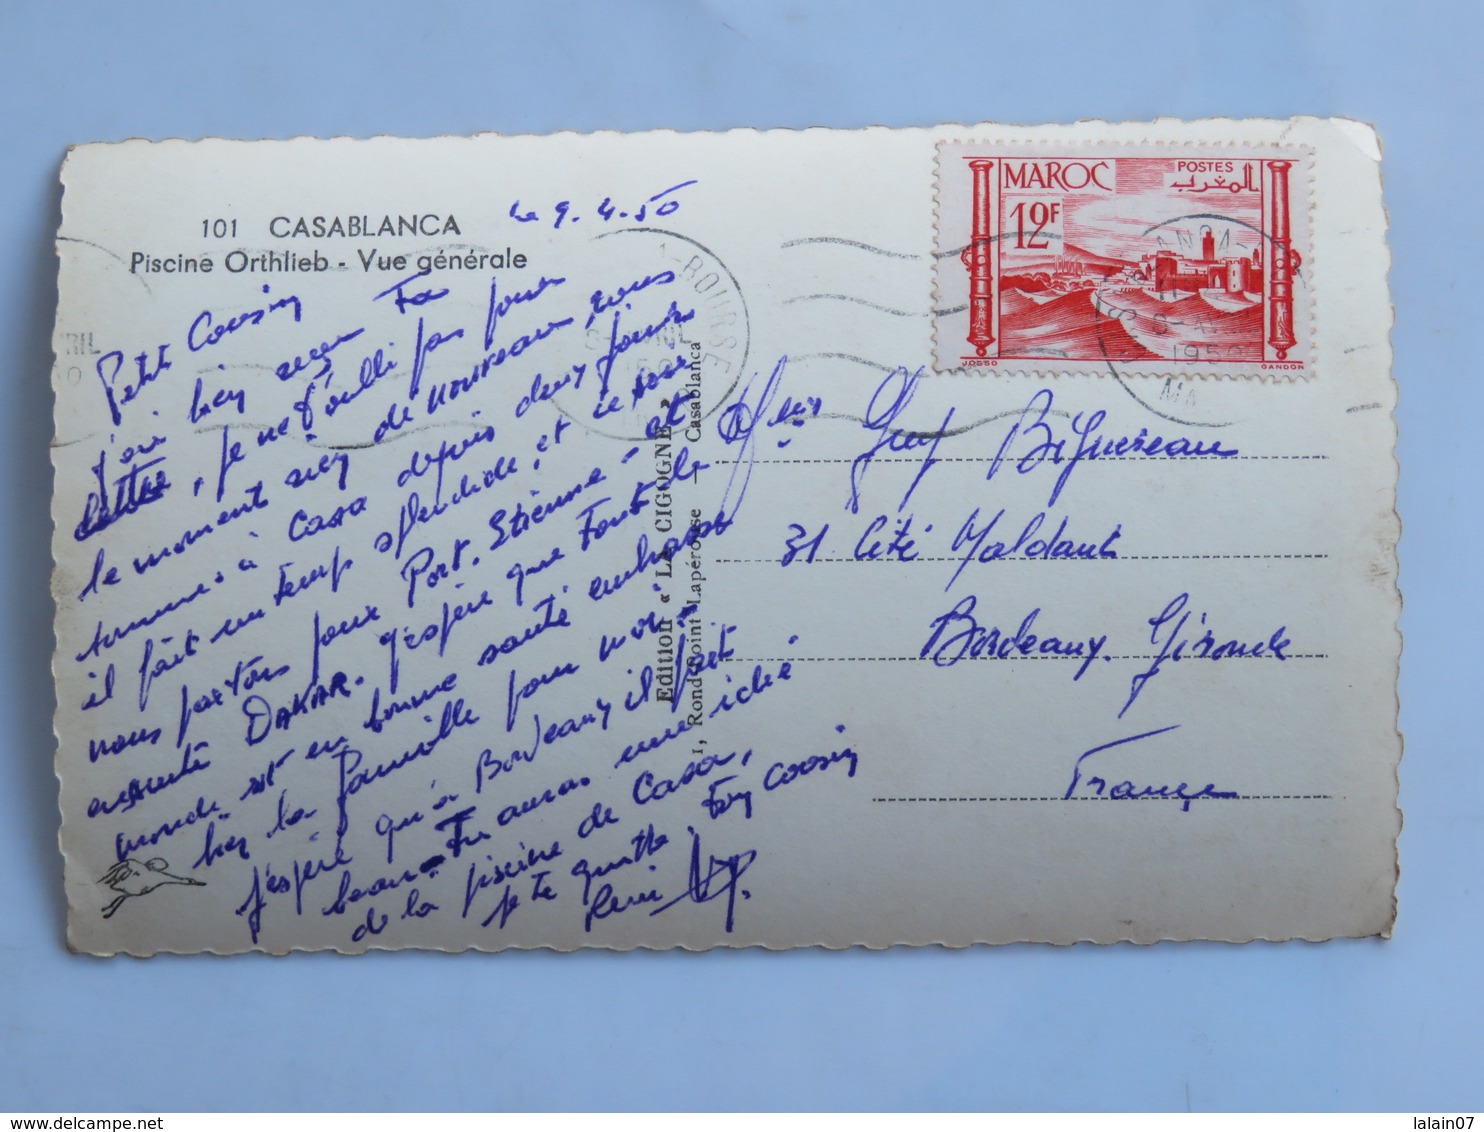 101 CASABLANCA
Piscine Orthlieb - Vue générale
Le 9.4.50
Petit Cousin
j'ai bien reçu Ta
lettre, je ne t'oublie pas pour
le moment rien de nouveau nous
sommes à Casa depuis deux jours
il fait un temps splendide, et ce soir
nous partons pour Port. Etienne - et
ensuite DAKAR. j'espère que Tout le
monde est en bonne santé embrasse
bien la famille pour moi.
J'espère qu'à Bordeaux il fait
beau - Tu auras une idée
de la piscine de Casa,
je te quitte Ton Cousin
Edition « LA CIGOGNE »
1, Rond-Point Lapérouse — Casablanca
MAROC
POSTES
المغرب
12F
JOSSO
GANDON
-BOURSE
1950
Guy Biguereau
31 Cité Maldant
Bordeaux. Gironde
France
lalain07